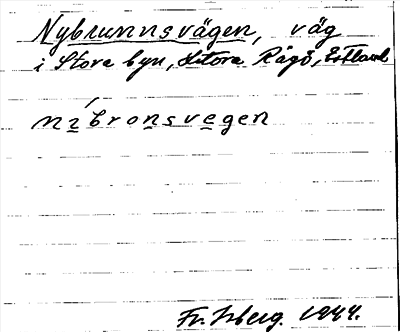 Nybrunnsvägen, väg
i Stora byn, Stora Rågö, Estland
níbronsvegen
Fr. Isberg. 1944.